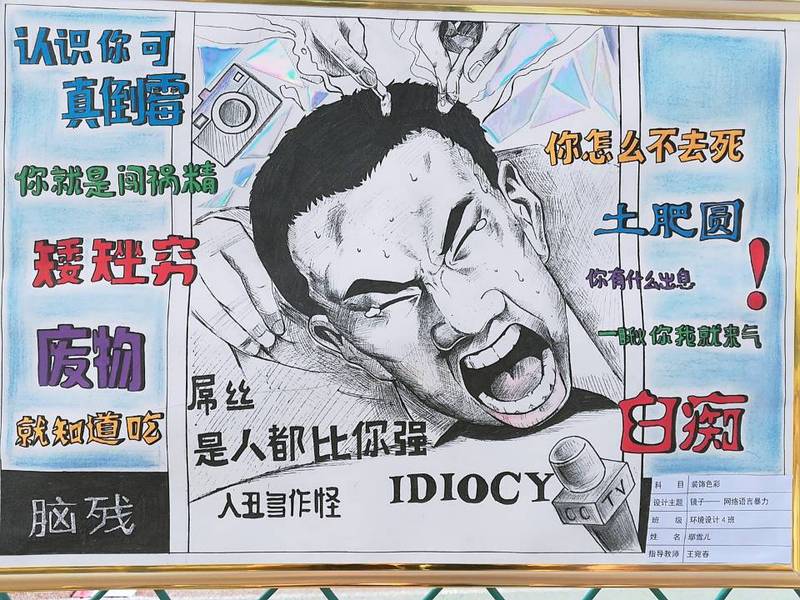 认识你可
真倒霉
你就是闯祸精
矮矬穷
废物
就知道吃
脑残
屌丝
是人都比你强
人丑多作怪
IDIOCY
CCTV
你怎么不去死
土肥圆
你有什么出息
!
一瞅你我就来气
白痴
科 目 装饰色彩
设计主题 镜子——网络语言暴力
班 级 环境设计4班
姓 名 鄢雪儿
指导教师 王宛春